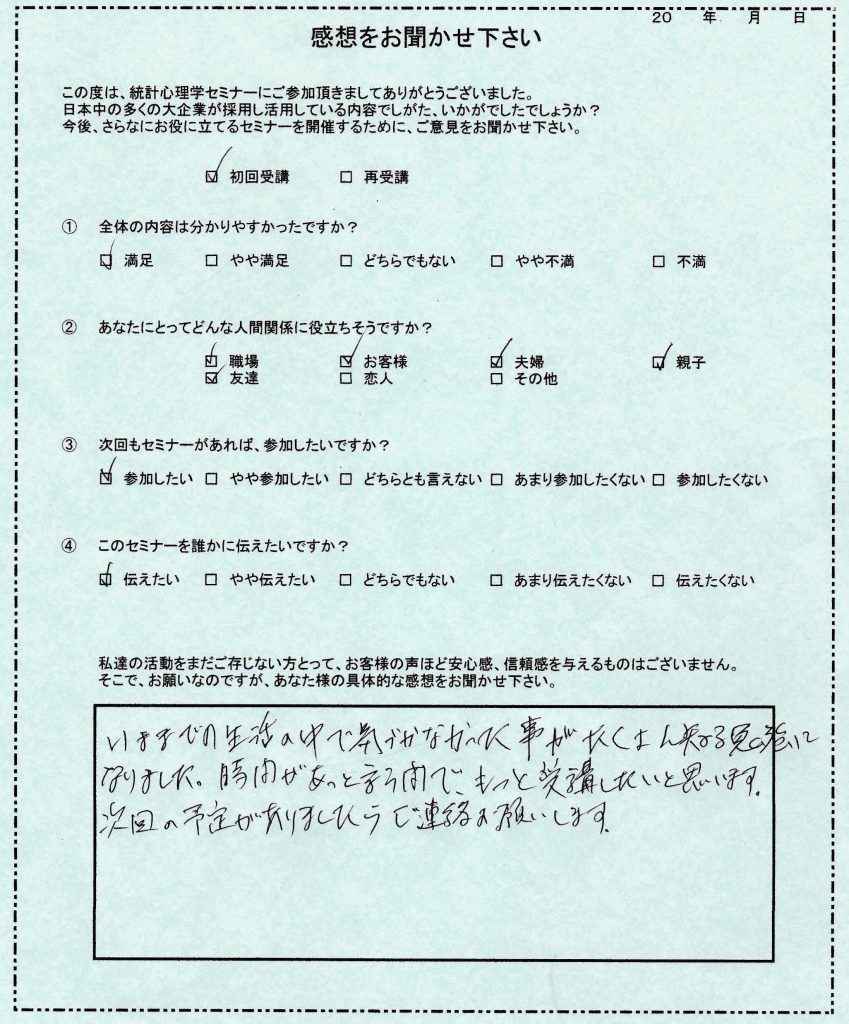 20 年 月 日
感想をお聞かせ下さい
この度は、統計心理学セミナーにご参加頂きましてありがとうございました。
日本中の多くの大企業が採用し活用している内容でしがた、いかがでしたでしょうか？
今後、さらなにお役に立てるセミナーを開催するために、ご意見をお聞かせ下さい。
☑ 初回受講 □ 再受講
① 全体の内容は分かりやすかったですか？
☑ 満足 □ やや満足 □ どちらでもない □ やや不満 □ 不満
② あなたにとってどんな人間関係に役立ちそうですか？
☑ 職場 ☑ お客様 ☑ 夫婦 ☑ 親子
☑ 友達 □ 恋人 □ その他
③ 次回もセミナーがあれば、参加したいですか？
☑ 参加したい □ やや参加したい □ どちらとも言えない □ あまり参加したくない □ 参加したくない
④ このセミナーを誰かに伝えたいですか？
☑ 伝えたい □ やや伝えたい □ どちらでもない □ あまり伝えたくない □ 伝えたくない
私達の活動をまだご存じない方とって、お客様の声ほど安心感、信頼感を与えるものはございません。
そこで、お願いなのですが、あなた様の具体的な感想をお聞かせ下さい。
いままでの生活の中で気づかなかった事がたくさん
なりました。時間があっと言う間で、もっと受講したいと思います。
次回の予定がありましたらご連絡お願いします。